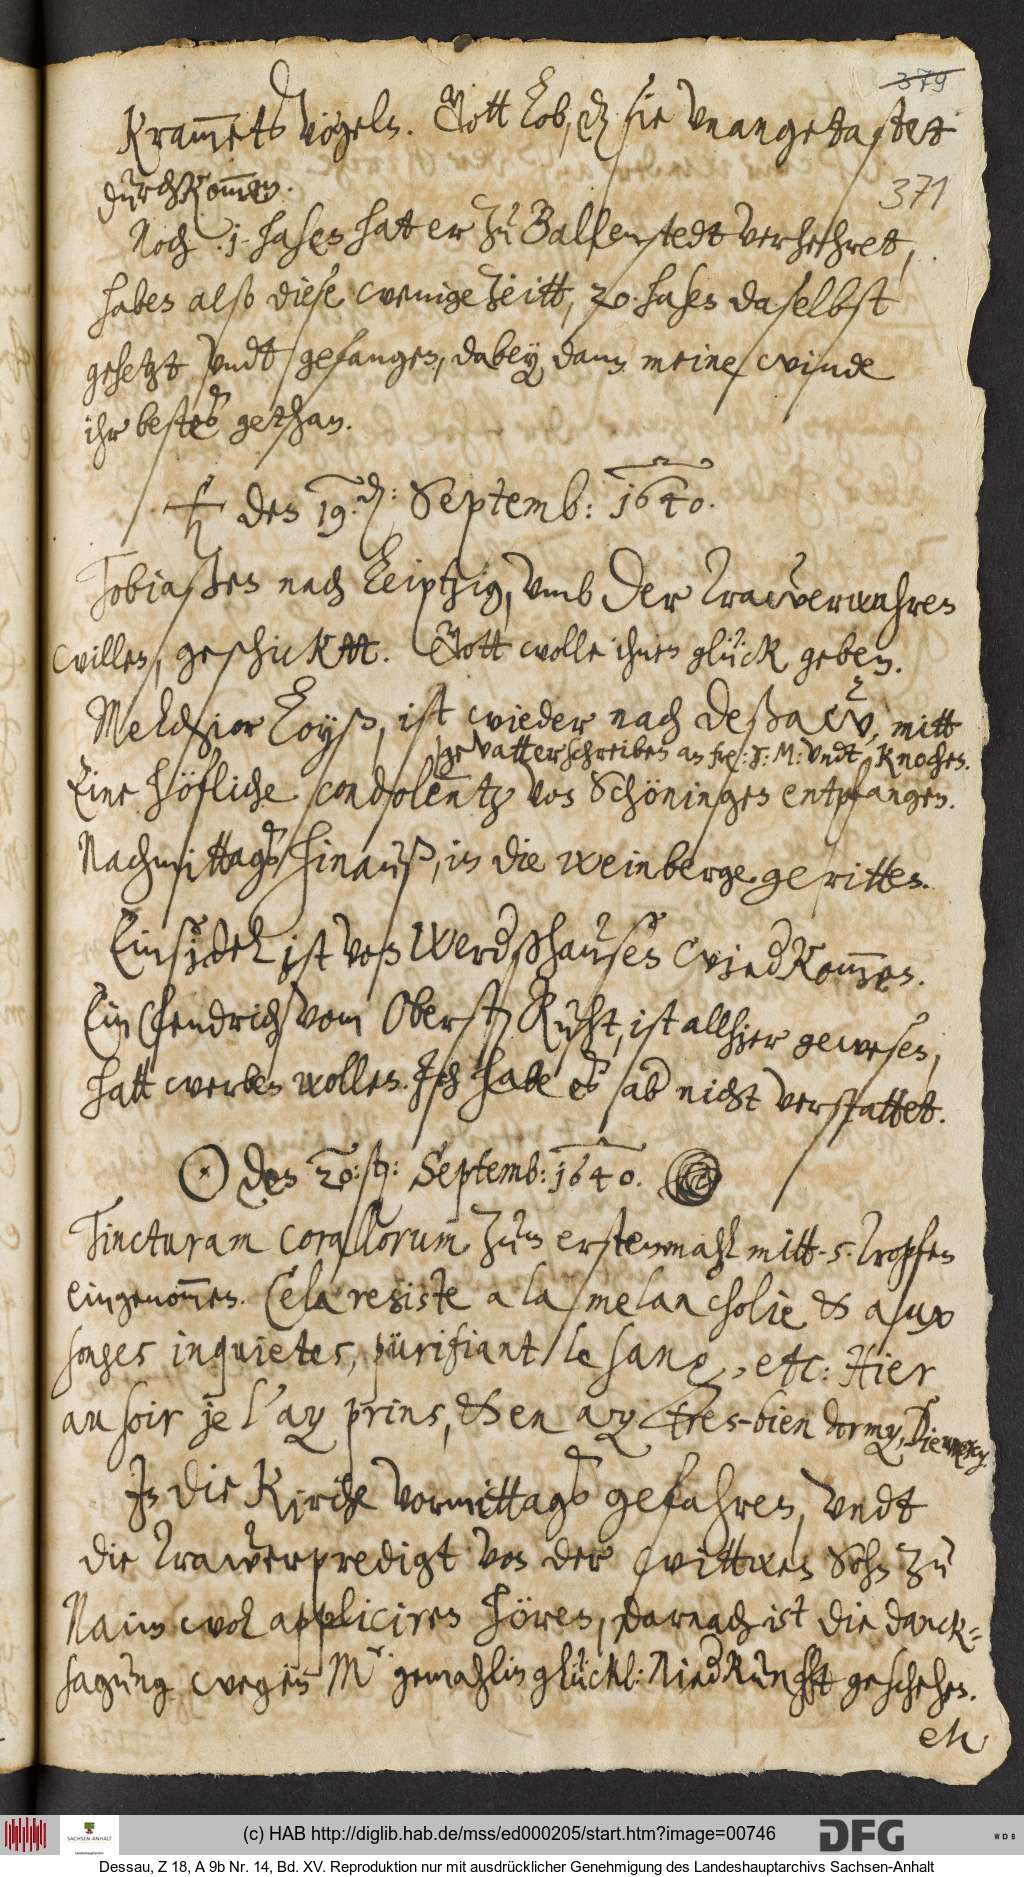 379
371
Krammets vögeln. Gott lob, dz sie unangetastet
durchkommen.
Noch .1. hasen hat er zu Ballenstedt verhehret,
haben also diese wenige zeitt, 20 hasen daselbst
gesetzt undt gefangen, dabey dann meine winde
ihr bestes gethan.
♄ den 19. Septemb: 1640.
Tobiaßen nach Leiptzig, umb der Trawerwahren
willen, geschicktt. Gott wolle ihnen glück geben.
Melchior Loyß, ist wieder nach Deßaw, mitt
gevatterschreiben an frl: S: M: undt Knochen.
Eine höfliche condolentz von Schöningen entpfangen.
Nachmittags hinauß, in die weinberge geritten.
Einsidel ist von Werdßhausen wied kommen.
Ein fendrich vom Oberst Rucht, ist allhier gewesen,
hatt werben wollen. Ich habe es ab nicht verstattet.
☉ den 20: Septemb: 1640.
Tincturam corallorum zum erstenmahl mitt .5. tropfen
eingenommen. Cela resiste a la melancholie & aux
songes inquietes, pürifiant le sang, etc: Hier
au soir je l'ay prins, & en ay tres-bien dormy, Dieumercy.
In die Kirche vormittags gefahren, undt
die Trawerpredigt von der wittwen Sohn zu
Nain wol appliciren hören, darnach ist die danck-
sagung wegen Mr. gemahlin glückl: Niedkunfft geschehen.
(c) HAB http://diglib.hab.de/mss/ed000205/start.htm?image=00746
SACHSEN-ANHALT
DFG
WDB
Dessau, Z 18, A 9b Nr. 14, Bd. XV. Reproduktion nur mit ausdrücklicher Genehmigung des Landeshauptarchivs Sachsen-Anhalt